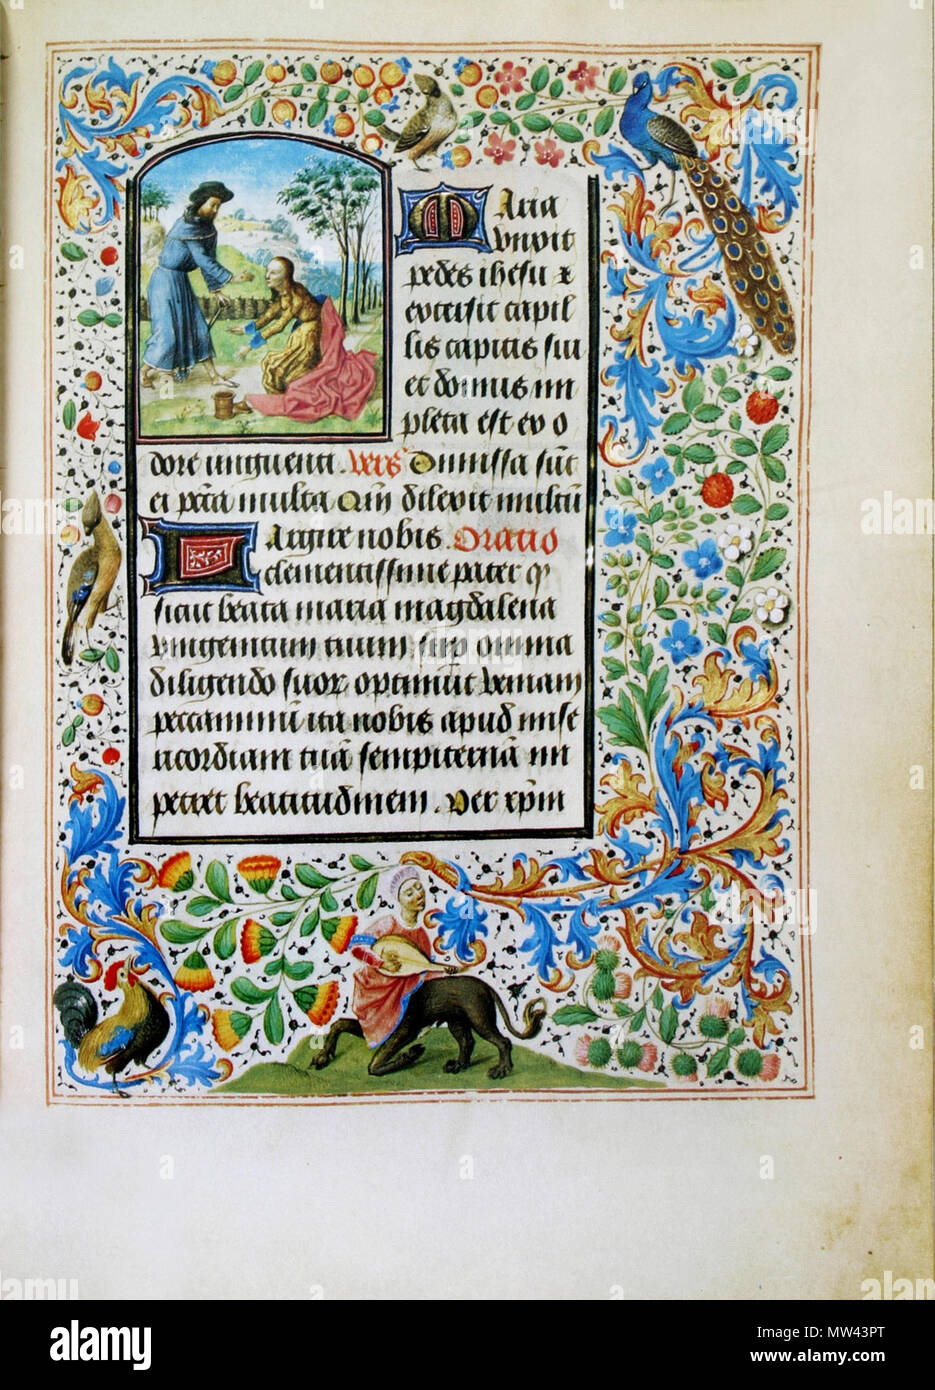 Maria
vnxit
pedes ihesu z
extersit capil
lis capitis sui
et domus im
pleta est ex o
dore unguenti. Vers Dimissa sūt
ei pctā multa Qm̄ dilexit multū
Largire nobis. Oratio
clementissime pater qͥ
sicut beata maria magdalena
vnigenitum tuum sup omnia
diligendo suor optinuit veniam
peccaminū ita nobis apud mise
ricordiam tuā sempiternā im
petret beatitudinem. Per xp̄m
alamy
alamy
Image ID: MW43PT
www.alamy.com